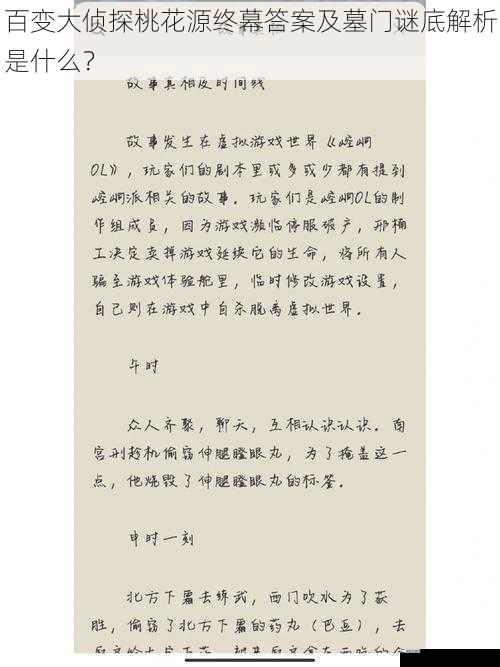 百变大侦探桃花源终幕答案及墓门谜底解析
是什么？
故事真相及时间线
故事发生在虚拟游戏世界《崆峒
OL》，玩家们的剧本里或多或少都有提到
崆峒派相关的故事。玩家们是崆峒OL的制
作组成员，因为游戏濒临停服破产，邢桶
工决定卖掉游戏延续它的生命，将所有人
骗至游戏体验舱里，临时修改游戏设置，
自己则在游戏中自杀脱离虚拟世界。
午时
众人齐聚，聊天，互相认识认识。南
宫刑趁机偷窃伸腿瞪眼丸，为了掩盖这一
点，他烧毁了伸腿瞪眼丸的标签。
申时一刻
北方下暑去练武，西门吹水为了获
胜，偷窃了北方下暑的药丸（巴豆），去